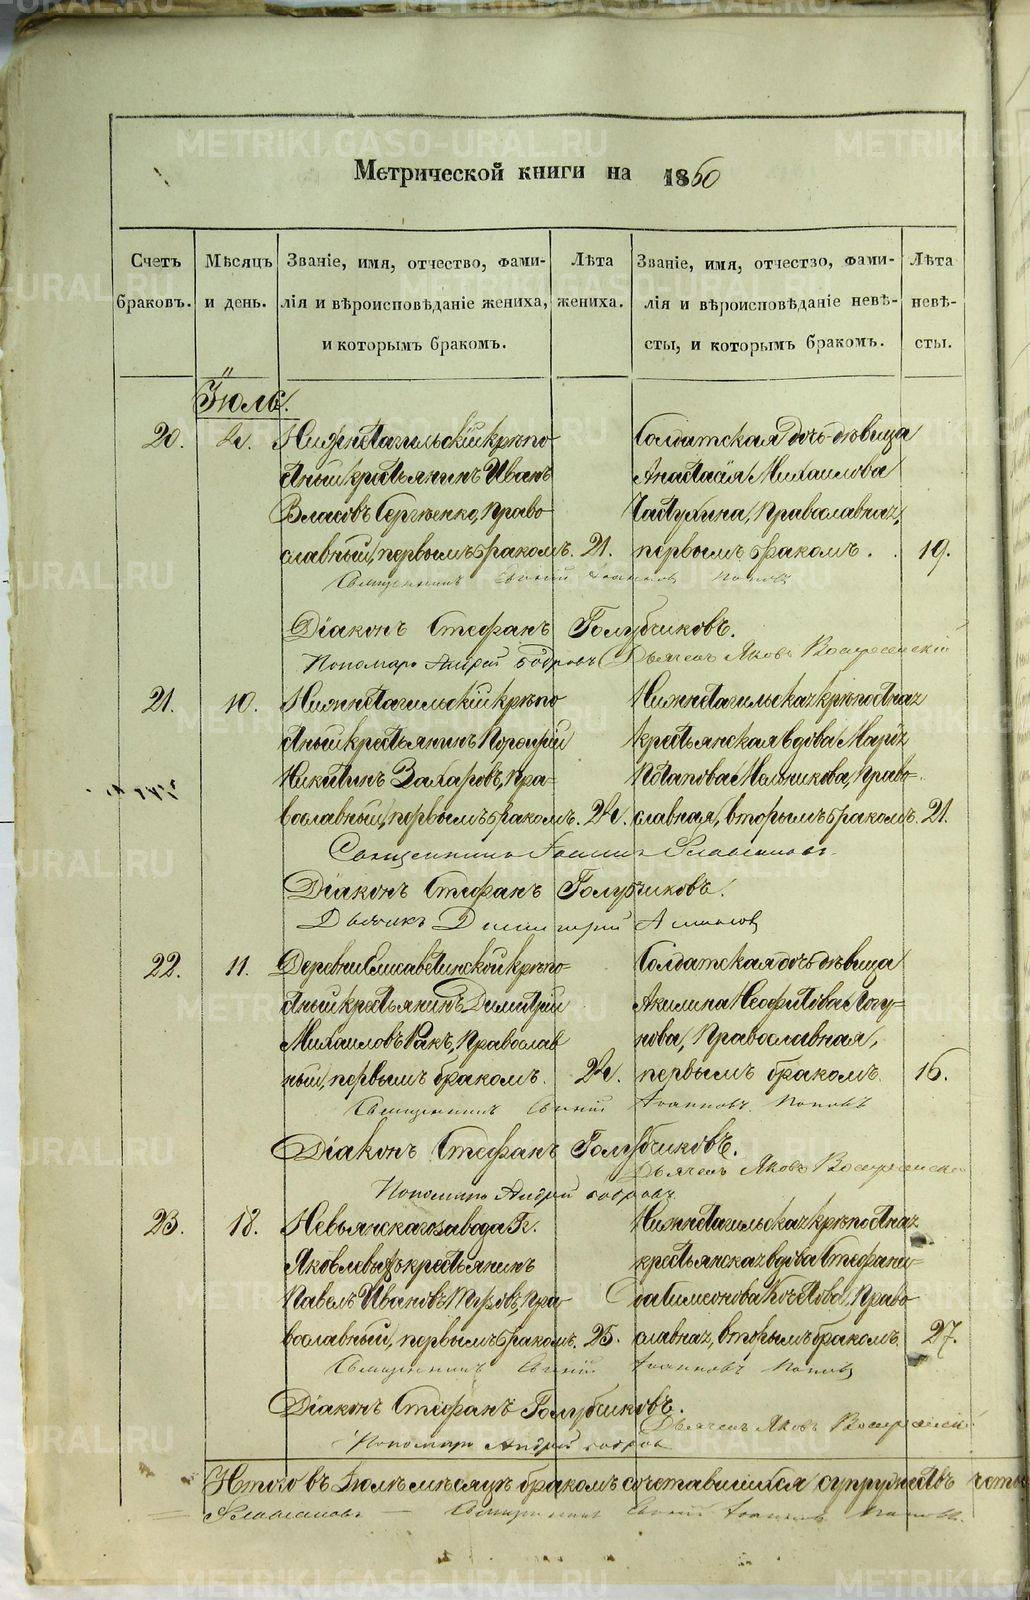 METRIKI.GASO-URAL.RU
Метрической книги на 1860
Счетъ браковъ.
Мѣсяцъ и день.
Званіе, имя, отчество, фами-
лія и вѣроисповѣданіе жениха,
и которымъ бракомъ.
Лѣта жениха.
Званіе, имя, отчество, фами-
лія и вѣроисповѣданіе невѣ-
сты, и которымъ бракомъ.
Лѣта невѣ-
сты.
Іюль.
20. 4. Нижнетагильскій крѣпо
стный крестьянинъ Иванъ
Власовъ Сергѣенко, Право
славный, первымъ бракомъ. 21.
Солдатская дочь дѣвица
Анастасія Михаилова
православная,
первымъ бракомъ. 19.
Священникъ Іоанновъ Поповъ
Діаконъ Стефанъ Голубчиковъ.
Пономарь Андрей Бобровъ Дьячекъ Яковъ Воскресенскій
21. 10. Нижнетагильскій крѣпо
стный крестьянинъ Порфирій
Никитинъ Захаровъ, Пра-
вославный, первымъ бракомъ. 24.
Нижнетагильская крѣпостная
крестьянская вдова Марія
Потапова Мельникова, Право-
славная, вторымъ бракомъ. 21.
Священникъ Іоаннъ
Діаконъ Стефанъ Голубчиковъ.
Дьячекъ Димитрій
22. 11. Деревни Елисаветинской крѣпо-
стный крестьянинъ Димитрій
Михаиловъ Ракъ, Православ
ный, первымъ бракомъ. 24.
Солдатская дочь дѣвица
Акилина Неофитова Логу-
нова, Православная,
первымъ бракомъ. 16.
Священникъ Іоанновъ Поповъ
Діаконъ Стефанъ Голубчиковъ.
Дьячекъ Яковъ Воскресенскій
Пономарь Андрей Бобровъ
23. 18. Невьянскаго завода Гг.
Яковлевыхъ крестьянинъ
Павелъ Ивановъ Пра-
вославный, первымъ бракомъ. 25.
Нижнетагильская крѣпостная
крестьянская вдова Стефани-
да Симеонова Право
славная, вторымъ бракомъ. 27.
Священникъ Іоанновъ Поповъ
Діаконъ Стефанъ Голубчиковъ.
Дьячекъ Яковъ Воскресенскій
Пономарь Андрей Бобровъ
Итого въ Іюлѣ мѣсяцѣ бракомъ сочетавшихся супружествъ
Священникъ Іоанновъ Поповъ.